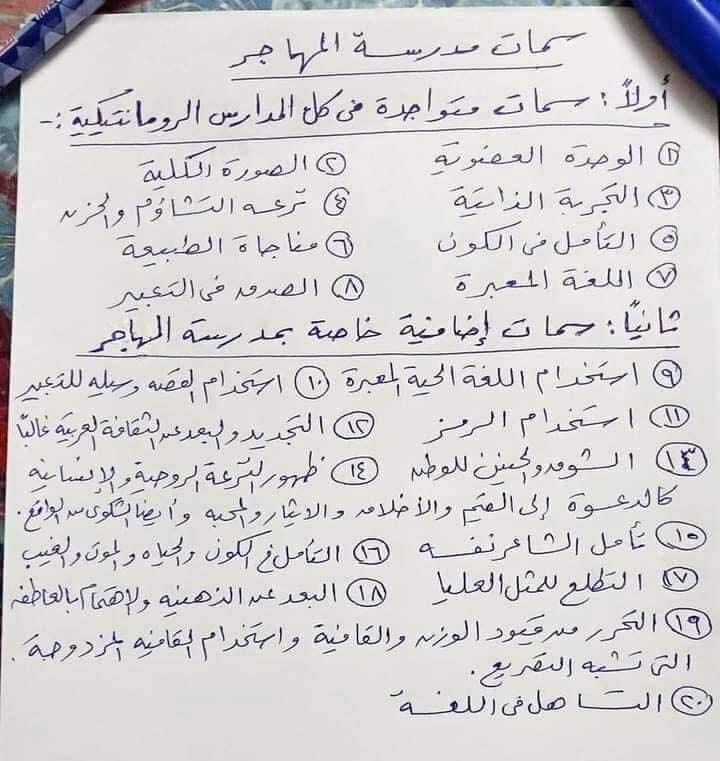 سمات مدرسة المهاجر
أولاً: سمات متواجدة فى كل المدارس الرومانتيكية :-
١ الوحدة العضوية ٢ الصورة الكلية
٣ التجربة الذاتية ٤ نزعة التشاؤم والحزن
٥ التأمل فى الكون ٦ مناجاة الطبيعة
٧ اللغة المعبرة ٨ الصدق فى التعبير
ثانياً: سمات إضافية خاصة بمدرسة المهاجر
٩ استخدام اللغة الحية المعبرة ١٠ استخدام القصه وسيله للتعبير
١١ استخدام الرمز ١٢ التجديد والبعد عن الثقافة العربية غالبًا
١٣ الشوق والحنين للوطن ١٤ ظهور النزعة الروحية والإنسانية
كالدعوة إلى القيم والأخلاق والايثار والمحبه وأيضا الشكوى من الواقع.
١٥ تأمل الشاعر نفسه ١٦ التأمل في الكون والحياه والموت والغيب
١٧ التطلع للمثل العليا ١٨ البعد عن الذهنيه والإهتمام بالعاطفه
١٩ التحرر من قيود الوزن والقافية واستخدام القافيه المزدوجة.
التى تشبه التصريع.
٢٠ التساهل فى اللغة